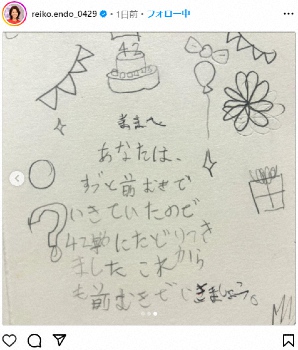 reiko.endo_0429 ・1日前・フォロー中
42
ままへ
あなたは、
ずっと前むきで
いきていたので
42歳にたどりつき
ました これから
も前むきでいきましょう。